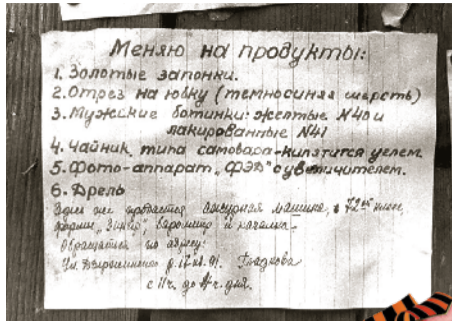 Меняю на продукты:
1. Золотые запонки.
2. Отрез на юбку (темносиняя шерсть)
3. Мужские ботинки: желтые N40 и
лакированные N41
4. Чайник типа самовара-кипятится углем.
5. Фото-аппарат „ФЭД" с увеличителем.
6. Дрель
Здесь же продается ажурная машина,
фирмы „Зингер, барометр и качалка.
Обращаться по адресу:
Ул. Дзержинского д. 17 кв. 91.
с 11 ч. до